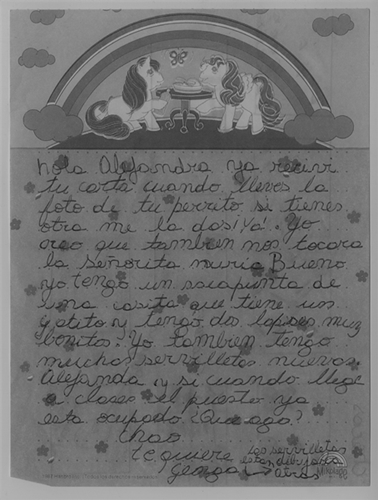 hola Alejandra ya recivi
tu carta cuando lleves la
foto de tu perrito si tienes
otra me la das¡Ya! Yo
creo que tambien nos tocara
la Señorita nuria Bueno
yo tengo un sacapunta de
una casita que tiene uos
gatito y tengo dos lapises muy
bonitos. Yo tambien tengo
muchas servilletas nuevas
Alejanda y si cuando llege
a clases el puesto ya
esta ocupado ¿Que ago?
chao
te quiere
las servilletas
estan dibujada
atras